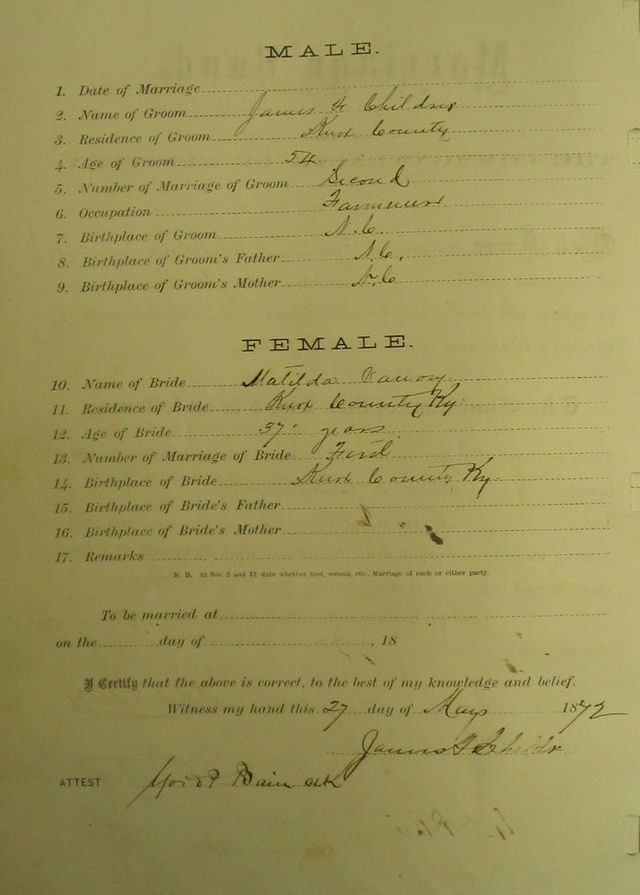 MALE.
1. Date of Marriage
2. Name of Groom James H Childers
3. Residence of Groom Knox County
4. Age of Groom 54
5. Number of Marriage of Groom Second
6. Occupation Farmer
7. Birthplace of Groom N.C.
8. Birthplace of Groom's Father N.C.
9. Birthplace of Groom's Mother N.C
FEMALE.
10. Name of Bride Matilda
11. Residence of Bride Knox County Ky.
12. Age of Bride 37 years
13. Number of Marriage of Bride First
14. Birthplace of Bride Knox County Ky
15. Birthplace of Bride's Father
16. Birthplace of Bride's Mother
17. Remarks
N. B. At Nos. 5 and 13 state whether first, second, etc., Marriage of each or either party.
To be married at
on the day of , 18
I Certify that the above is correct, to the best of my knowledge and belief.
Witness my hand this 27 day of May 1872
James H Childers
ATTEST Bain clk